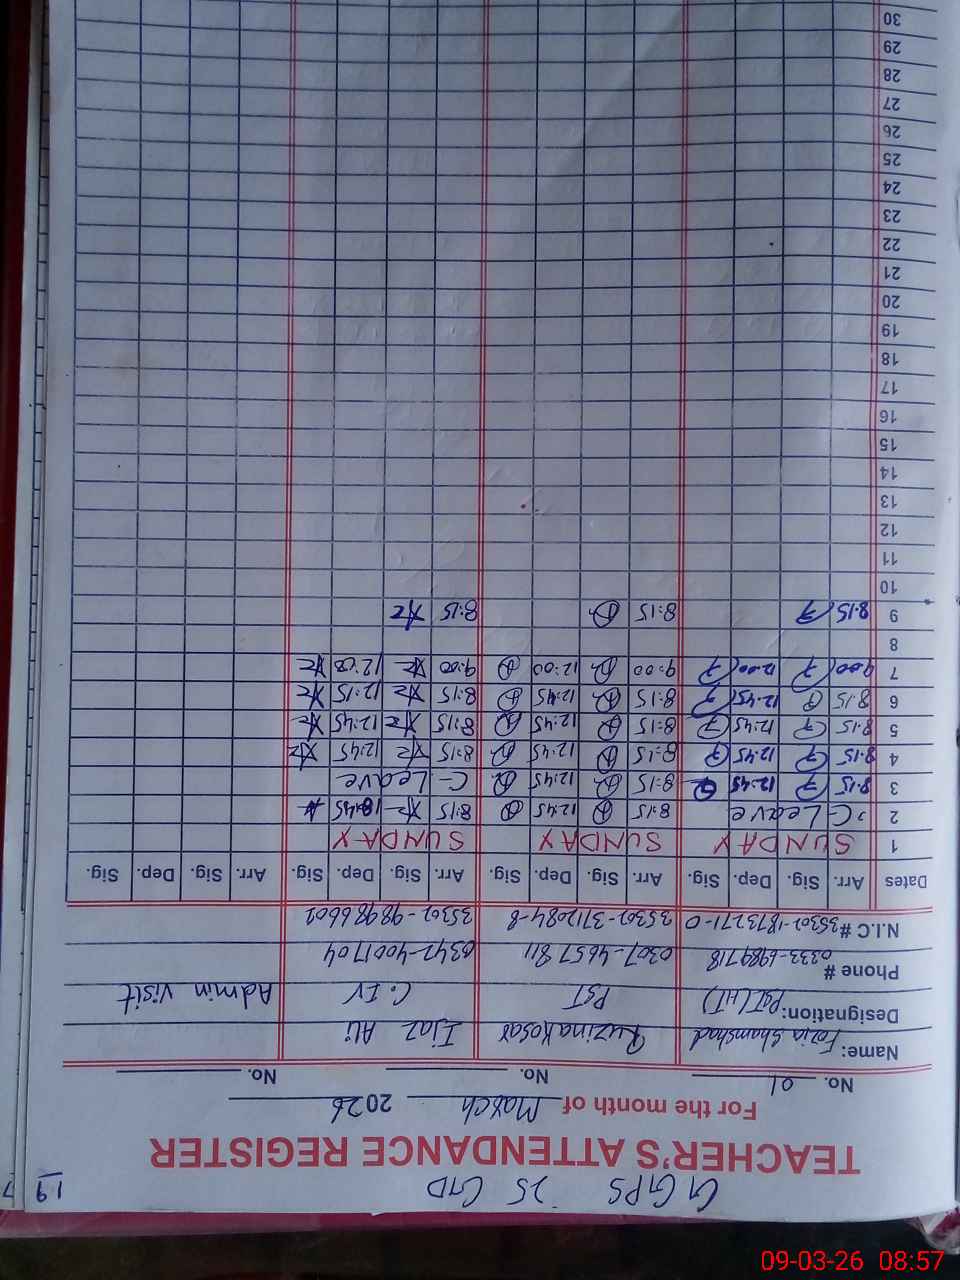 GGPS 25 GD
19
TEACHER'S ATTENDANCE REGISTER
For the month of March 2026
No. 01 No. No.
Name: Fozia Shamshad Ruzina Kosar Ijaz Ali
Designation: PST(HT) PST C.IV Admin visit
Phone # 0333-6984718 0307-4657811 0342-4001704
N.I.C # 35302-1873271-0 35302-3712084-8 35302-9898660
Dates Arr. Sig. Dep. Sig. Arr. Sig. Dep. Sig. Arr. Sig. Dep. Sig. Arr. Sig. Dep. Sig.
1 SUNDAY SUNDAY SUNDAY
2 C-Leave 8:15 12:45 8:15
3 8:15 12:45 8:15 12:45 C-Leave
4 8:15 12:45 8:15 12:45 8:15 12:45
5 8:15 12:45 8:15 12:45 8:15 12:45
6 8:15 12:45 8:15 12:45 8:15 12:15
7 9:00 12:00 9:00 12:00 9:00 12:00
8
9 8:15 8:15 8:15
10
11
12
13
14
15
16
17
18
19
20
21
22
23
24
25
26
27
28
29
30
09-03-26 08:57